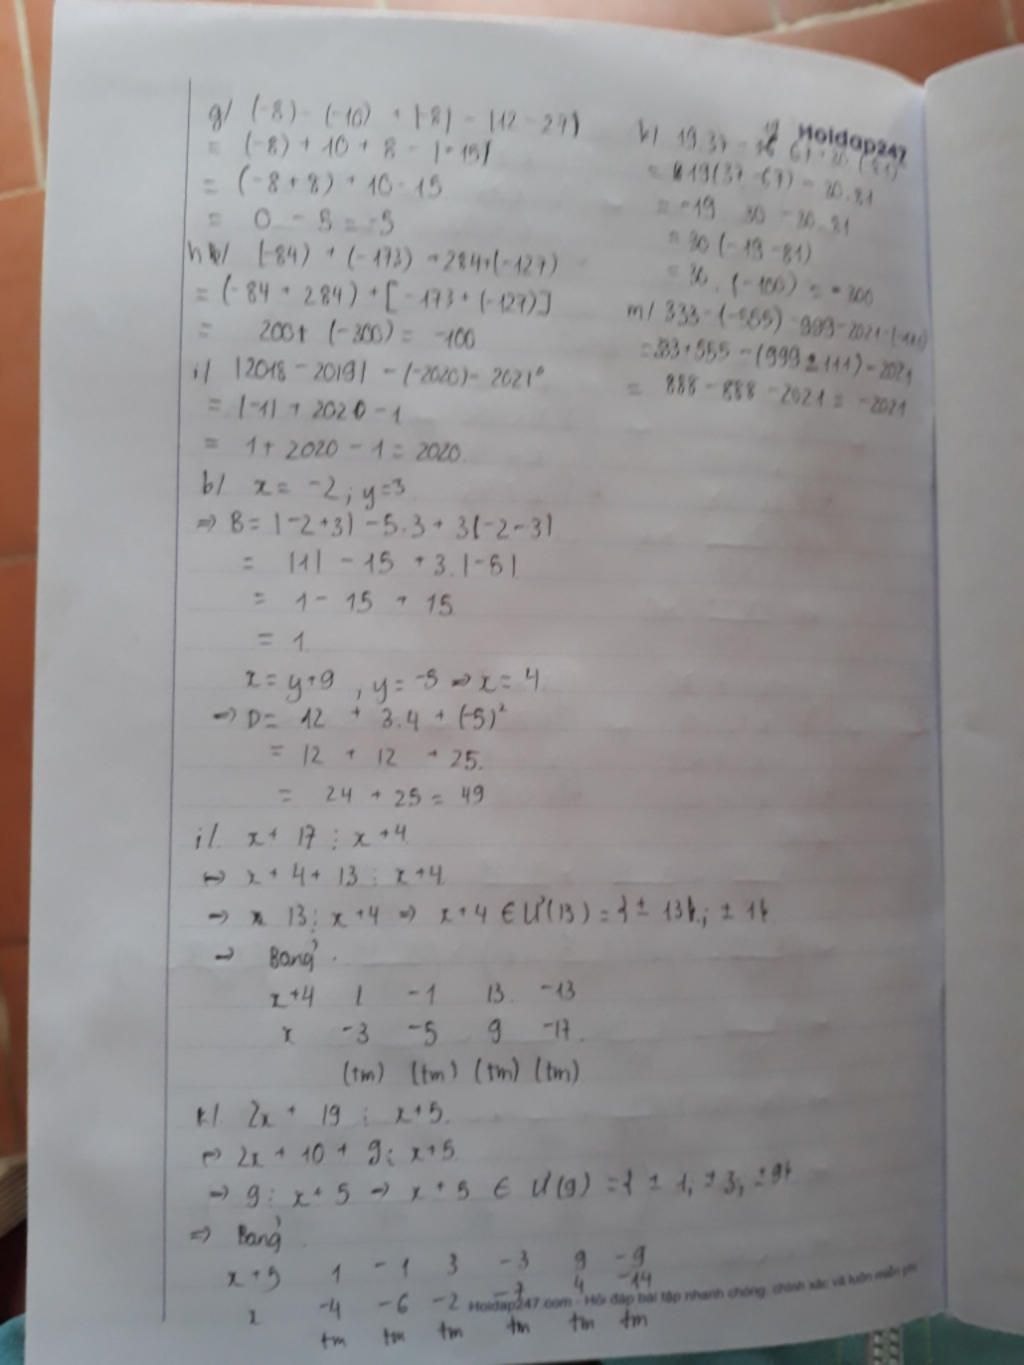 g/ (-8) - (-10) + |-8| - |12 - 27|
= (-8) + 10 + 8 - |-15|
= (-8+8) + 10 - 15
= 0 - 5 = -5
h/ (-84) + (-173) + 284 + (-127)
= (-84 + 284) + [-173 + (-127)]
= 200 + (-300) = -100
i/ |2018 - 2019| - (-2020) - 2021⁰
= |-1| + 2020 - 1
= 1 + 2020 - 1 = 2020.
Hoidap247
k/ 19.37 -
= 19(37 - 67) - 30.81
= -19 30 - 30.81
= 30 (-19 - 81)
= 30. (-100) = -300
m/ 333 - (-555) - 999 - 2021 - (-111)
= 333 + 555 - (999 ± 111) - 2021
= 888 - 888 - 2021 = -2021
b/ x = -2; y = 3
⇒ B = |-2+3| - 5.3 + 3|-2-3|
= |1| - 15 + 3.|-5|
= 1 - 15 + 15
= 1
x = y+9, y = -5 ⇒ x = 4
⇒ D = 12 + 3.4 + (-5)²
= 12 + 12 + 25.
= 24 + 25 = 49
i/. x + 17 ⋮ x + 4
⇔ x + 4 + 13 ⋮ x + 4
⇒ 13 ⋮ x + 4 ⇒ x + 4 ∈ Ư(13) = {± 13; ± 1}
⇒ Bảng
x+4 1 -1 13 -13
x -3 -5 9 -17
(tm) (tm) (tm) (tm)
k/. 2x + 19 ⋮ x+5.
⇔ 2x + 10 + 9 ⋮ x+5
⇒ 9 ⋮ x + 5 ⇒ x + 5 ∈ Ư(9) = {± 1; ± 3; ± 9}
⇒ Bảng
x+5 1 -1 3 -3 9 -9
x -4 -6 -2 -7 4 -14
tm tm tm tm tm tm
Hoidap247.com - Hỏi đáp bài tập nhanh chóng, chính xác và luôn miễn phí